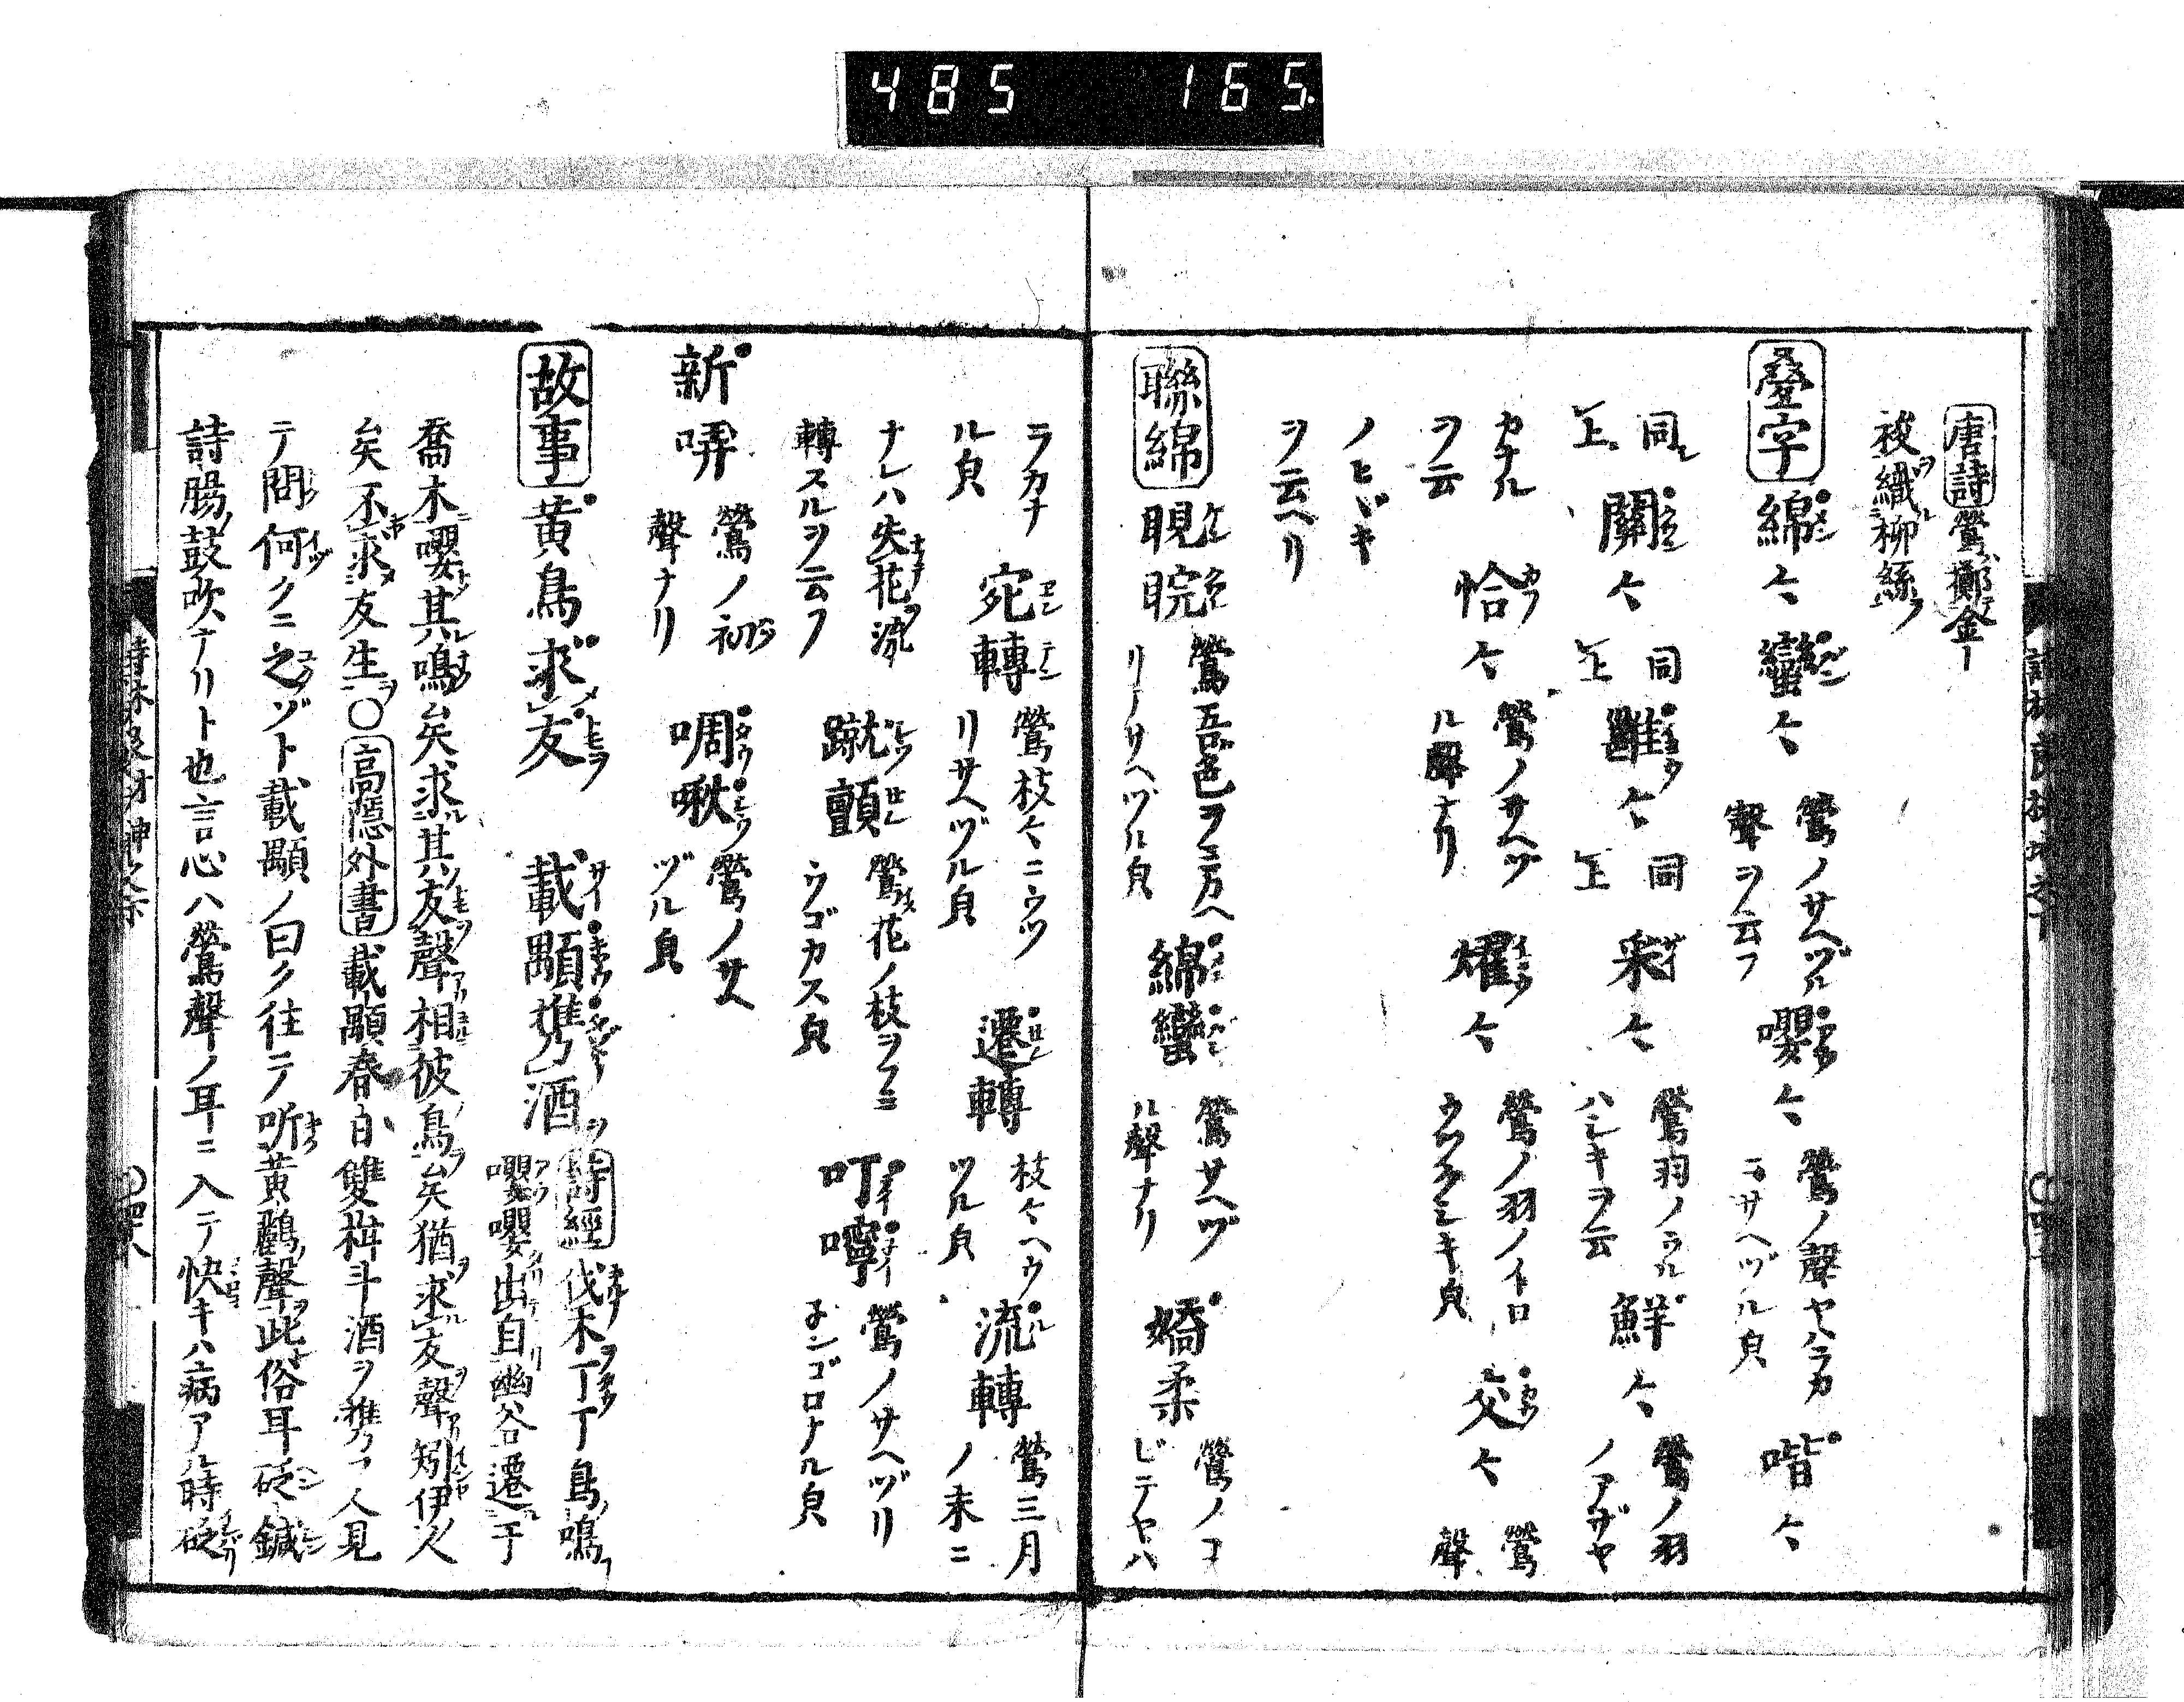 485 165
唐詩鶯擲金
梭織柳絲
疊字 綿々 蠻々 鶯ノサヘヅル聲ヲ云フ 嚶々 鶯ノ聲ヤハラカニサヘヅル皃 喈々
同上 關々 同上 雝々 同上 采々 鶯羽ノウルハシキヲ云 鮮々 鶯ノ羽ノアザヤ
カナルヲ云 恰々 鶯ノサヘヅル聲ナリ 燿々 鶯ノ羽ノイロウツクシキ皃 交々 鶯聲
ノヒヾキヲ云ヘリ
聯綿 睍睆 鶯五色ヲマヘリサヘヅル皃 綿蠻 鶯サヘヅル聲ナリ 嬌柔 鶯ノコビテヤハ
ラカナル皃 宛轉 鶯枝々ニウツリサヘヅル皃 遷轉 枝々ヘウツル皃 流轉 鶯三月ノ末ニ
ナレハ失花流轉スルヲ云フ 蹴顫 鶯花ノ枝ヲフミウゴカス皃 叮嚀 鶯ノサヘヅリ子ンゴロナル皃
新哢 鶯ノ初聲ナリ 啁啾 鶯ノサヘヅル皃
故事 黄鳥求友 載顒携酒 詩經 伐木丁丁鳥鳴
嚶嚶出自幽谷遷于
喬木嚶其鳴矣求其友聲相彼鳥矣猶求友聲矧伊人
矣不求友生〇高隱外書載顒春日雙柑斗酒ヲ携フ人見
テ問何クニ之ゾト載顒ノ曰ク往テ听黄鸝聲此俗耳砭鍼
詩腸鼓吹ナリト也言心ハ鶯聲ノ耳ニ入テ快キハ病アル時砭